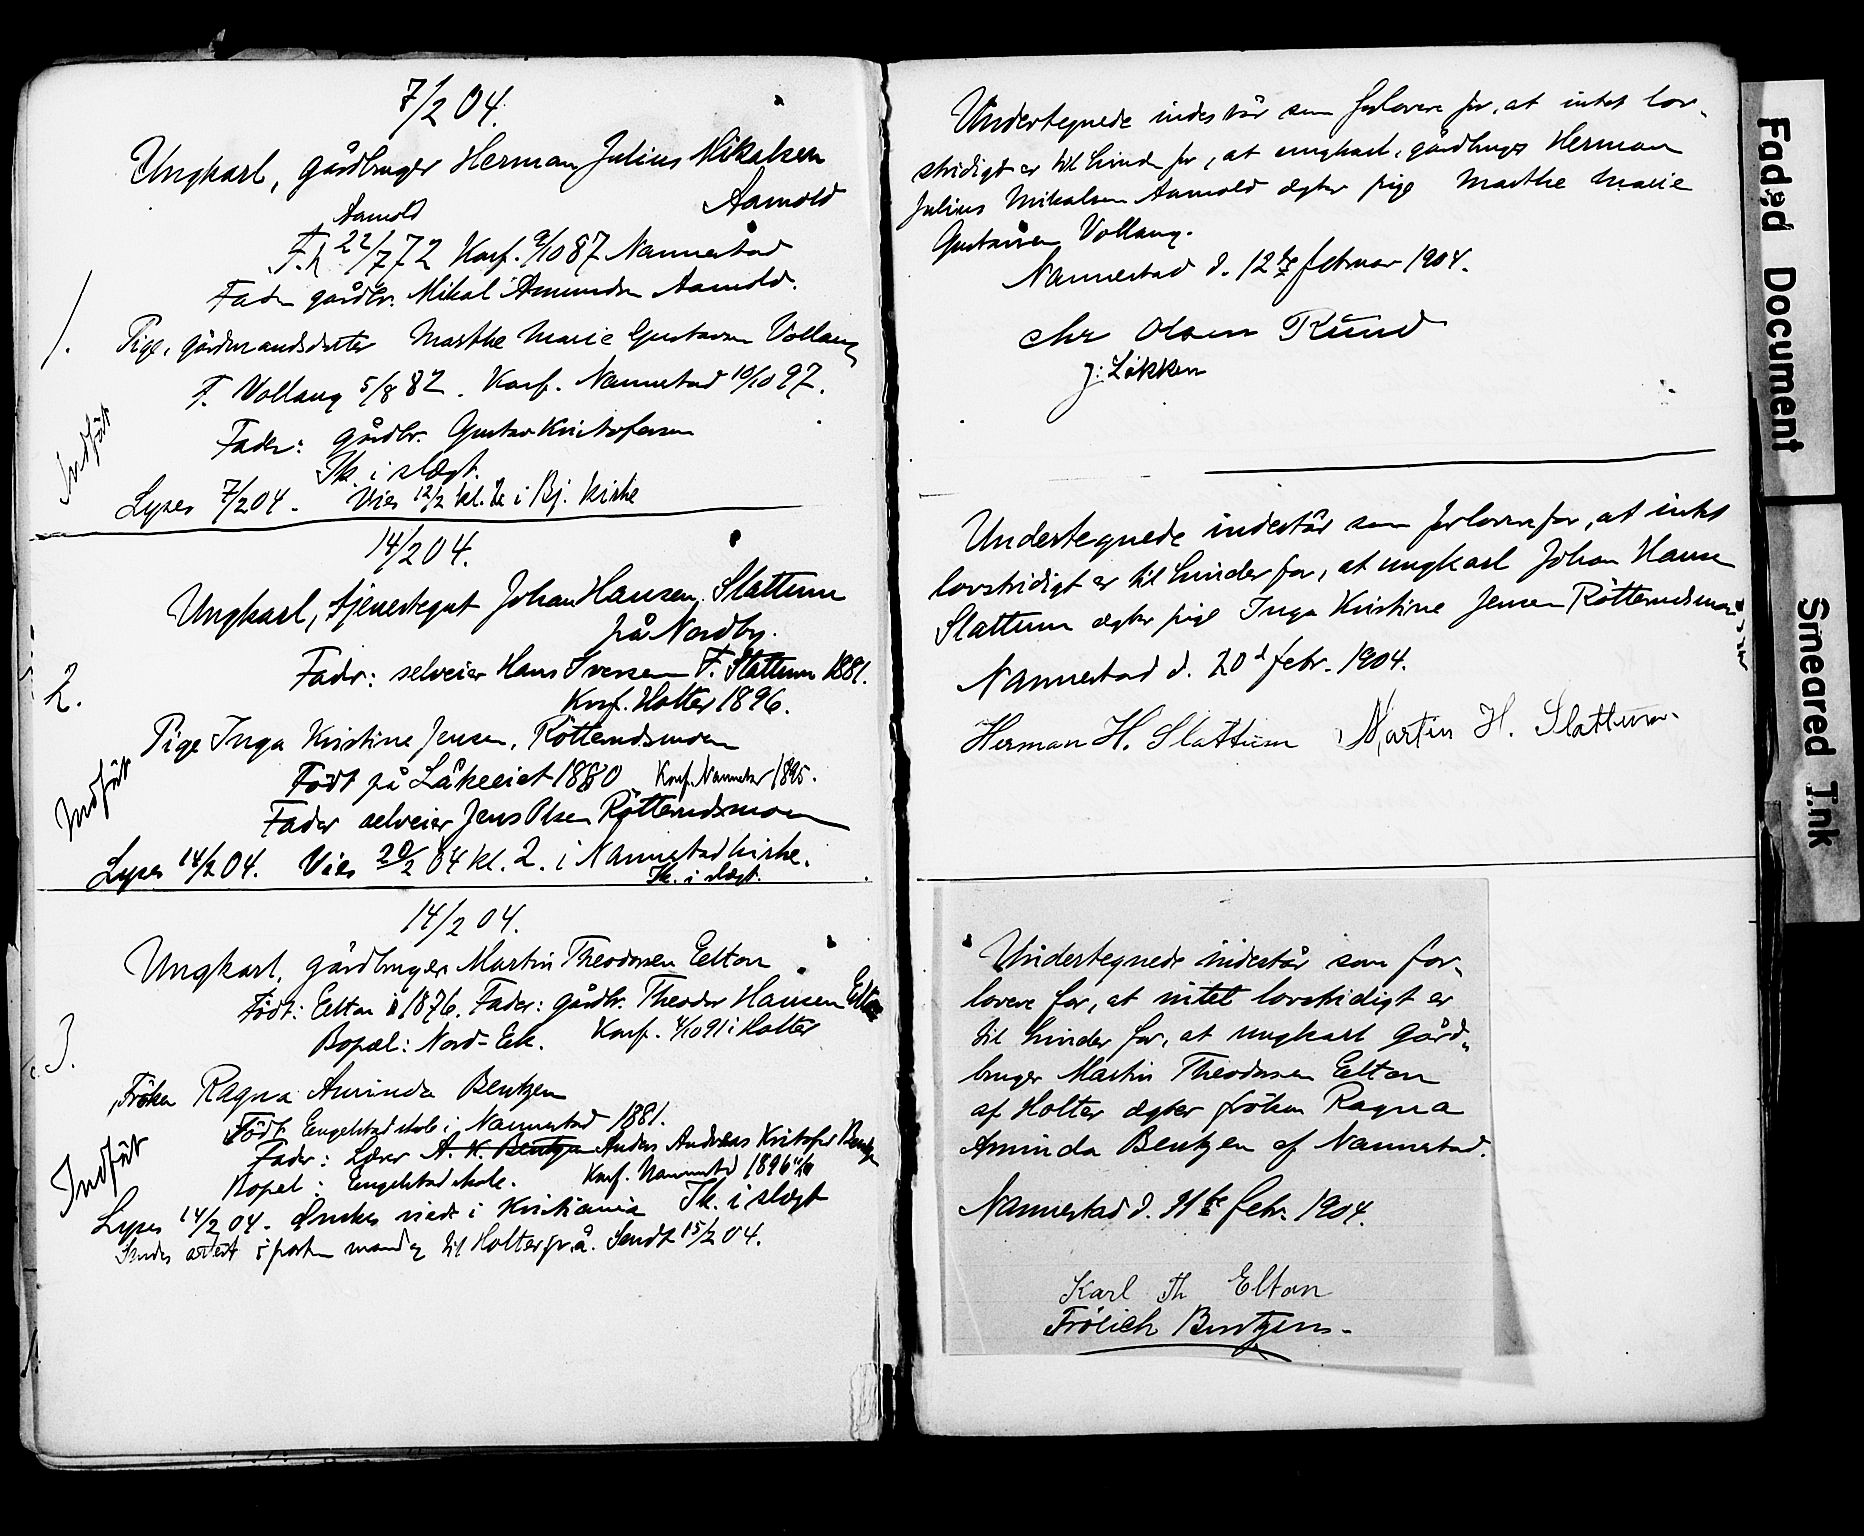 7/2 04.
Ungkarl, gårdbruger Herman Julius Mikalsen
Aamold
Aamold
F. 22/7 72 Konf. 9/10 87 Nannestad
Fader gårdbr. Mikal Amundsen Aamold.
1.
Pige, gårdmandsdatter Marthe Marie Gustavsen Vollaug
F. Vollaug 5/8 82. Konf. Nannestad 10/10 97.
Indført
Fader: gårdbr. Gustav Kristofersen
Ik. i slægt.
Lyses 7/2 04. Vies 12/2 kl. i Bj. kirke
14/2 04.
Ungkarl, tjenestegut Johan Hansen Slattum
på Nordby.
Fader: selveier Hans Iversen F. Slattum 1881.
Konf. Holter 1896.
2.
Pige Inga Kristine Jensen, Rötterudsmoen
Födt på Låkeeiet 1880 Konf. Nannestad 1895.
Indført
Fader selveier Jens Olsen Rötterudsmoen
Lyses 14/2 04. Vies 20/2 04 kl. 2. i Nannestad kirke.
Ik. i slægt.
14/2 04.
Ungkarl, gårdbruger Martin Theodorsen Eltons
Födt: Elton i 1876. Fader: gårdbr. Theodor Hansen Elton
Bopæl: Nord-Eek. Konf. 4/10 91 i Holter
3.
Fröken Ragna Aminda Bentzen
Födt Engelstad skole i Nannestad 1881.
Fader: Lærer A. K. Bentzen Anders Andreas Kristofer Bentzen
Bopæl: Engelstad skole. Konf. Nannestad 1896
Indført
Lyses 14/2 04. Ønskes viede i Kristiania Ik. i slægt
Sendes attest i posten mandag til Holter p. å. Sendt 15/2 04.
Undertegnede indestår som forlovere for, at intet lov-
stridigt er til hinder for, at ungkarl, gårdbruger Herman
Julius Mikalsen Aamold ægter pige Marthe Marie
Gustavsen Vollaug.
Nannestad d. 12te februar 1904.
Chr Olsen Rund
J: Lökken
Undertegnede indestår som forlovere for, at intet
lovstridigt er til hinder for, at ungkarl Johan Hansen
Slattum ægter pige Inga Kristine Jensen Rötterudsmoen
Nannestad d. 20d febr. 1904.
Herman H. Slattum Martin H. Slattum.
Undertegnede indestår som for-
lovere for, at intet lovstridigt er
til hinder for, at ungkarl gård-
bruger Martin Theodorsen Elton
af Holter ægter fröken Ragna
Aminda Bentzen af Nannestad.
Nannestad d. 21te febr. 1904.
Karl Th Elton
Frölich Bentzen.
Faded Document
Smeared Ink